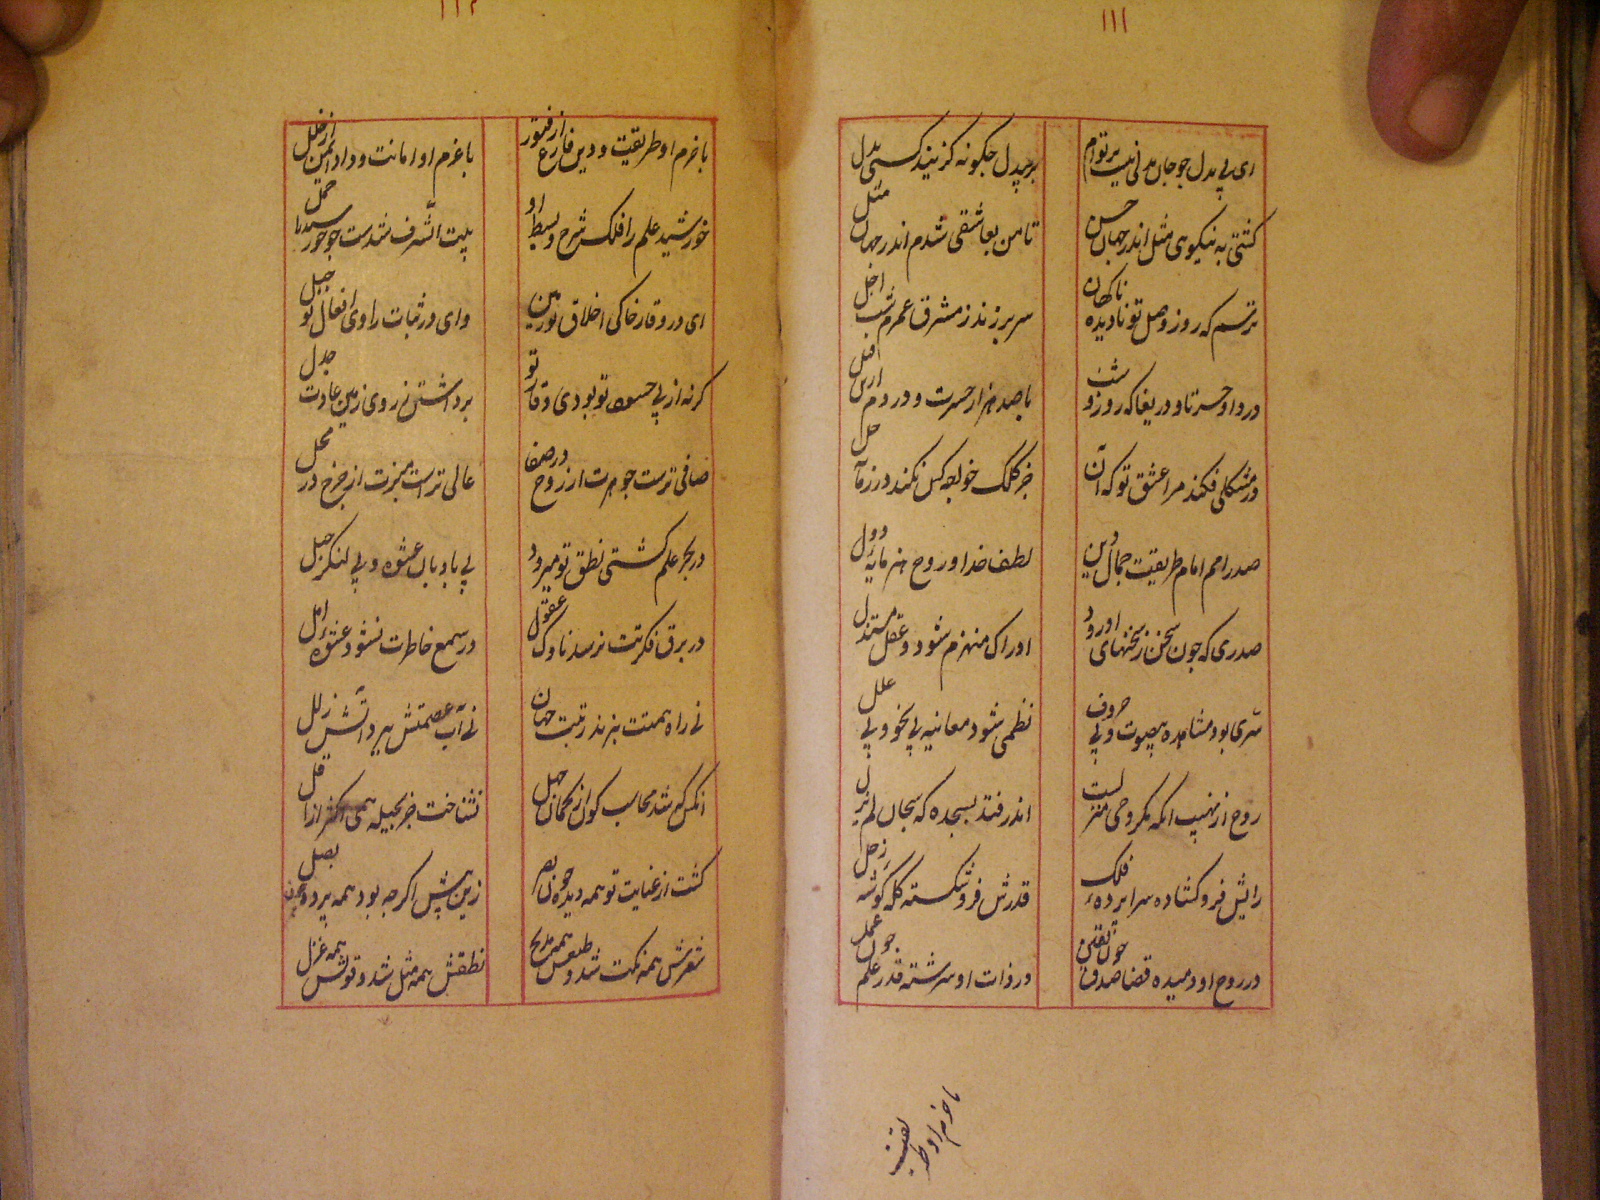 ۱۱۱
ای بی بدل چو جان بدلی نیست بر توام
بر بیدل چگونه گزیند کسی بدل
گشتی به نیکوی مثل اندر جهان حسن
تا من بعاشقی شدم اندر جهان مثل
ترسم که روز وصل تو نادیده ناکهان
سر برزند ز مشرق عمرم شب اجل
دردا و حسرتا و دریغا که روز و شب
با صد هزار حسرت و دردم ازین
در مشکلی فکند مرا عشق تو که آن
جز کلک خواجه کس نکند در زمانه حل
صدر امم امام طریقت جمال دین
لطف خدا و روح هنر مایه دول
صدری که چون سخن ز سخنهای او رود
ادراک منهزم شود و عقل مستذل
سری بود مشاهده بیصوت و بی حروف
نظمی شود معاینه بی نحو و بی علل
روح از نهیب آنکه مگر وحی منزلست
اندر فتد بسجده که سبحان لم یزل
رایش فرو کشاده سراپردهء فلک
قدرش فرو شکسته کله گوشهء زحل
در روح او دمیده قضا صدق چون تقی
در ذات او سرشته قدر علم چون عمل
با حزم او طریقت
۱۱۲
با حزم او طریقت و دین فارغ از فتور
با عزم او امانت و داد ایمن از خلل
خورشید علم را فلک شرح و بسط او
بیت الشرف شدست چو خورشید را حمل
ای در وقار خاکی اخلاق نور بین
وای در ثبات راوی افعال تو جبل
گر نه از پی حسود تو بودی وقار تو
برداشتی ز روی زمین عادت جدل
صافی ترست جوهرت از روح در صفا
عالی ترست همتت از چرخ در محل
در بحر علم کشتی نطق تو میرود
بی بادبان عشوه و بی لنگر حیل
در برق فکرتت نرسد ناوک عقول
در سمع خاطرت نشود عشوهء امل
نی راه همتت بزند رتبت جهان
نی آب عصمتش ببرد آتش زلل
آنکس که شد محاسب کون از کمان جهل
نشناخت جز بحیله همی اکثر از اقل
گشت از عنایت تو همه دیده چون بصر
زین پیش اگرچه بود همه پرده چون بصل
شعرش همه نکت شد و طبعش همه مدیح
نطقش همه مثل شد و قولش همه غزل